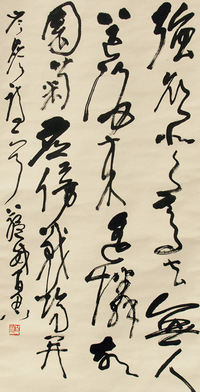 強欲登高去無人
送酒來遙憐故
園菊應傍戰場開
岑參詩一首